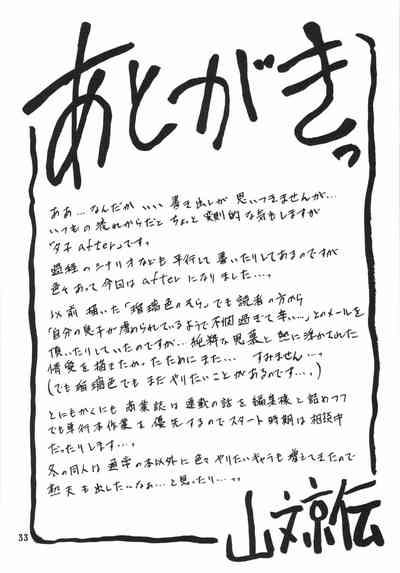 あとがきっ
ああ…なんだか いい 書き出しが 思いつきませんが…
いつもの 流れからだと ちょっと 変則的な気もしますが
「タネ after」です。
過程の シナリオなども 平行して 書いたりしてあるのですが
色々あって 今回は after に なりました…。
以前 描いた「瑠璃色のそら」でも 読者の方から
「自分の息子が虐められているようで不憫過ぎて辛い…」とのメールを
頂いたりしていたのですが… 純粋な思慕と 熱に浮かされた
情愛を 描きたかったために また… すみません…。
(でも 瑠璃色でも まだ やりたいことが あるのです…。)
とにもかくにも 商業誌は 連載の話を 編集様と 詰めつつ
でも単行本作業を 優先するので スタート時期は 相談中
だったりします…。
冬の同人は 通常の本以外に 色々 やりたいキャラも 増えてきたので
も出したいなぁ… と思ったり…。
山文京伝
33